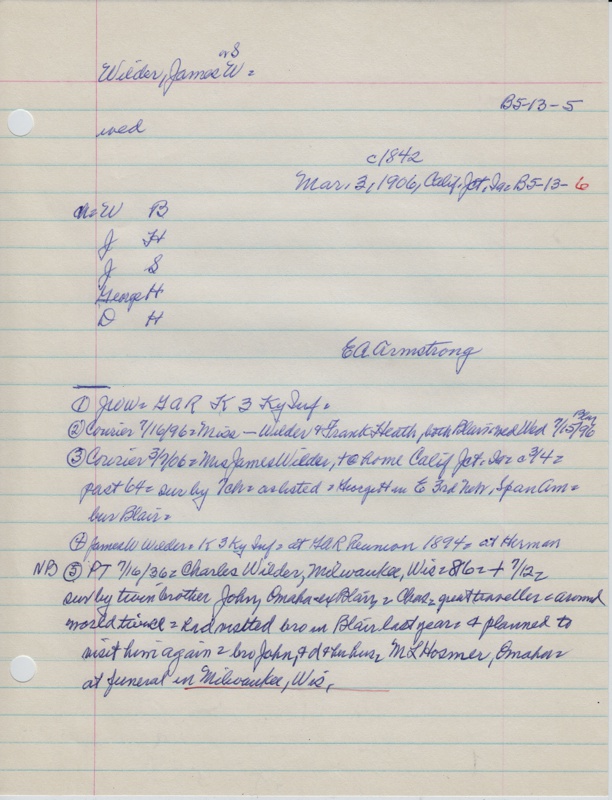 or S
Wilder, James W =
B5-13-5
wed
c1842
Mar. 3, 1906, Calif. Jct, Ia = B5-13-6
ch = W B
J H
J S
George H
D H
E A Armstrong
① JWW = GAR K 3 Ky Inf =
② Courier 7/16/96 = Miss — Wilder & Frank Heath, both Blair = wed Wed 7/15/96 Blair
③ Courier 3/7/06 = Mrs James Wilder, + @ home Calif Jct, Ia = c 3/4 =
past 64 = sur by 7ch = as listed = George H in E 3rd Neb, Span Am =
bur Blair =
④ James W Wilder = K 3 Ky Inf = at GAR Reunion 1894 = at Herman
NB ⑤ PT 7/16/36 = Charles Wilder, Milwaukee, Wis = 86 = + 7/12 =
sur by twin brother John, Omaha = ex Blair = Chas = great traveller = around
world twice = had visited bro in Blair last year = & planned to
visit him again = bro John, & d & her hus, M L Hosmer, Omaha =
at funeral in Milwaukee, Wis,